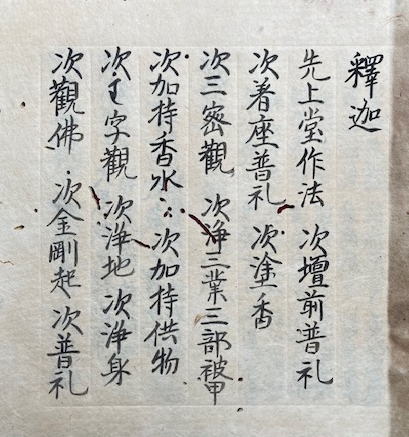 釋迦
先上堂作法 次壇前普礼
次着座普礼 次塗香
次三密觀 次浄三業三部被甲
次加持香水 次加持供物
次字觀 次浄地 次浄身
次觀佛 次金剛起 次普礼